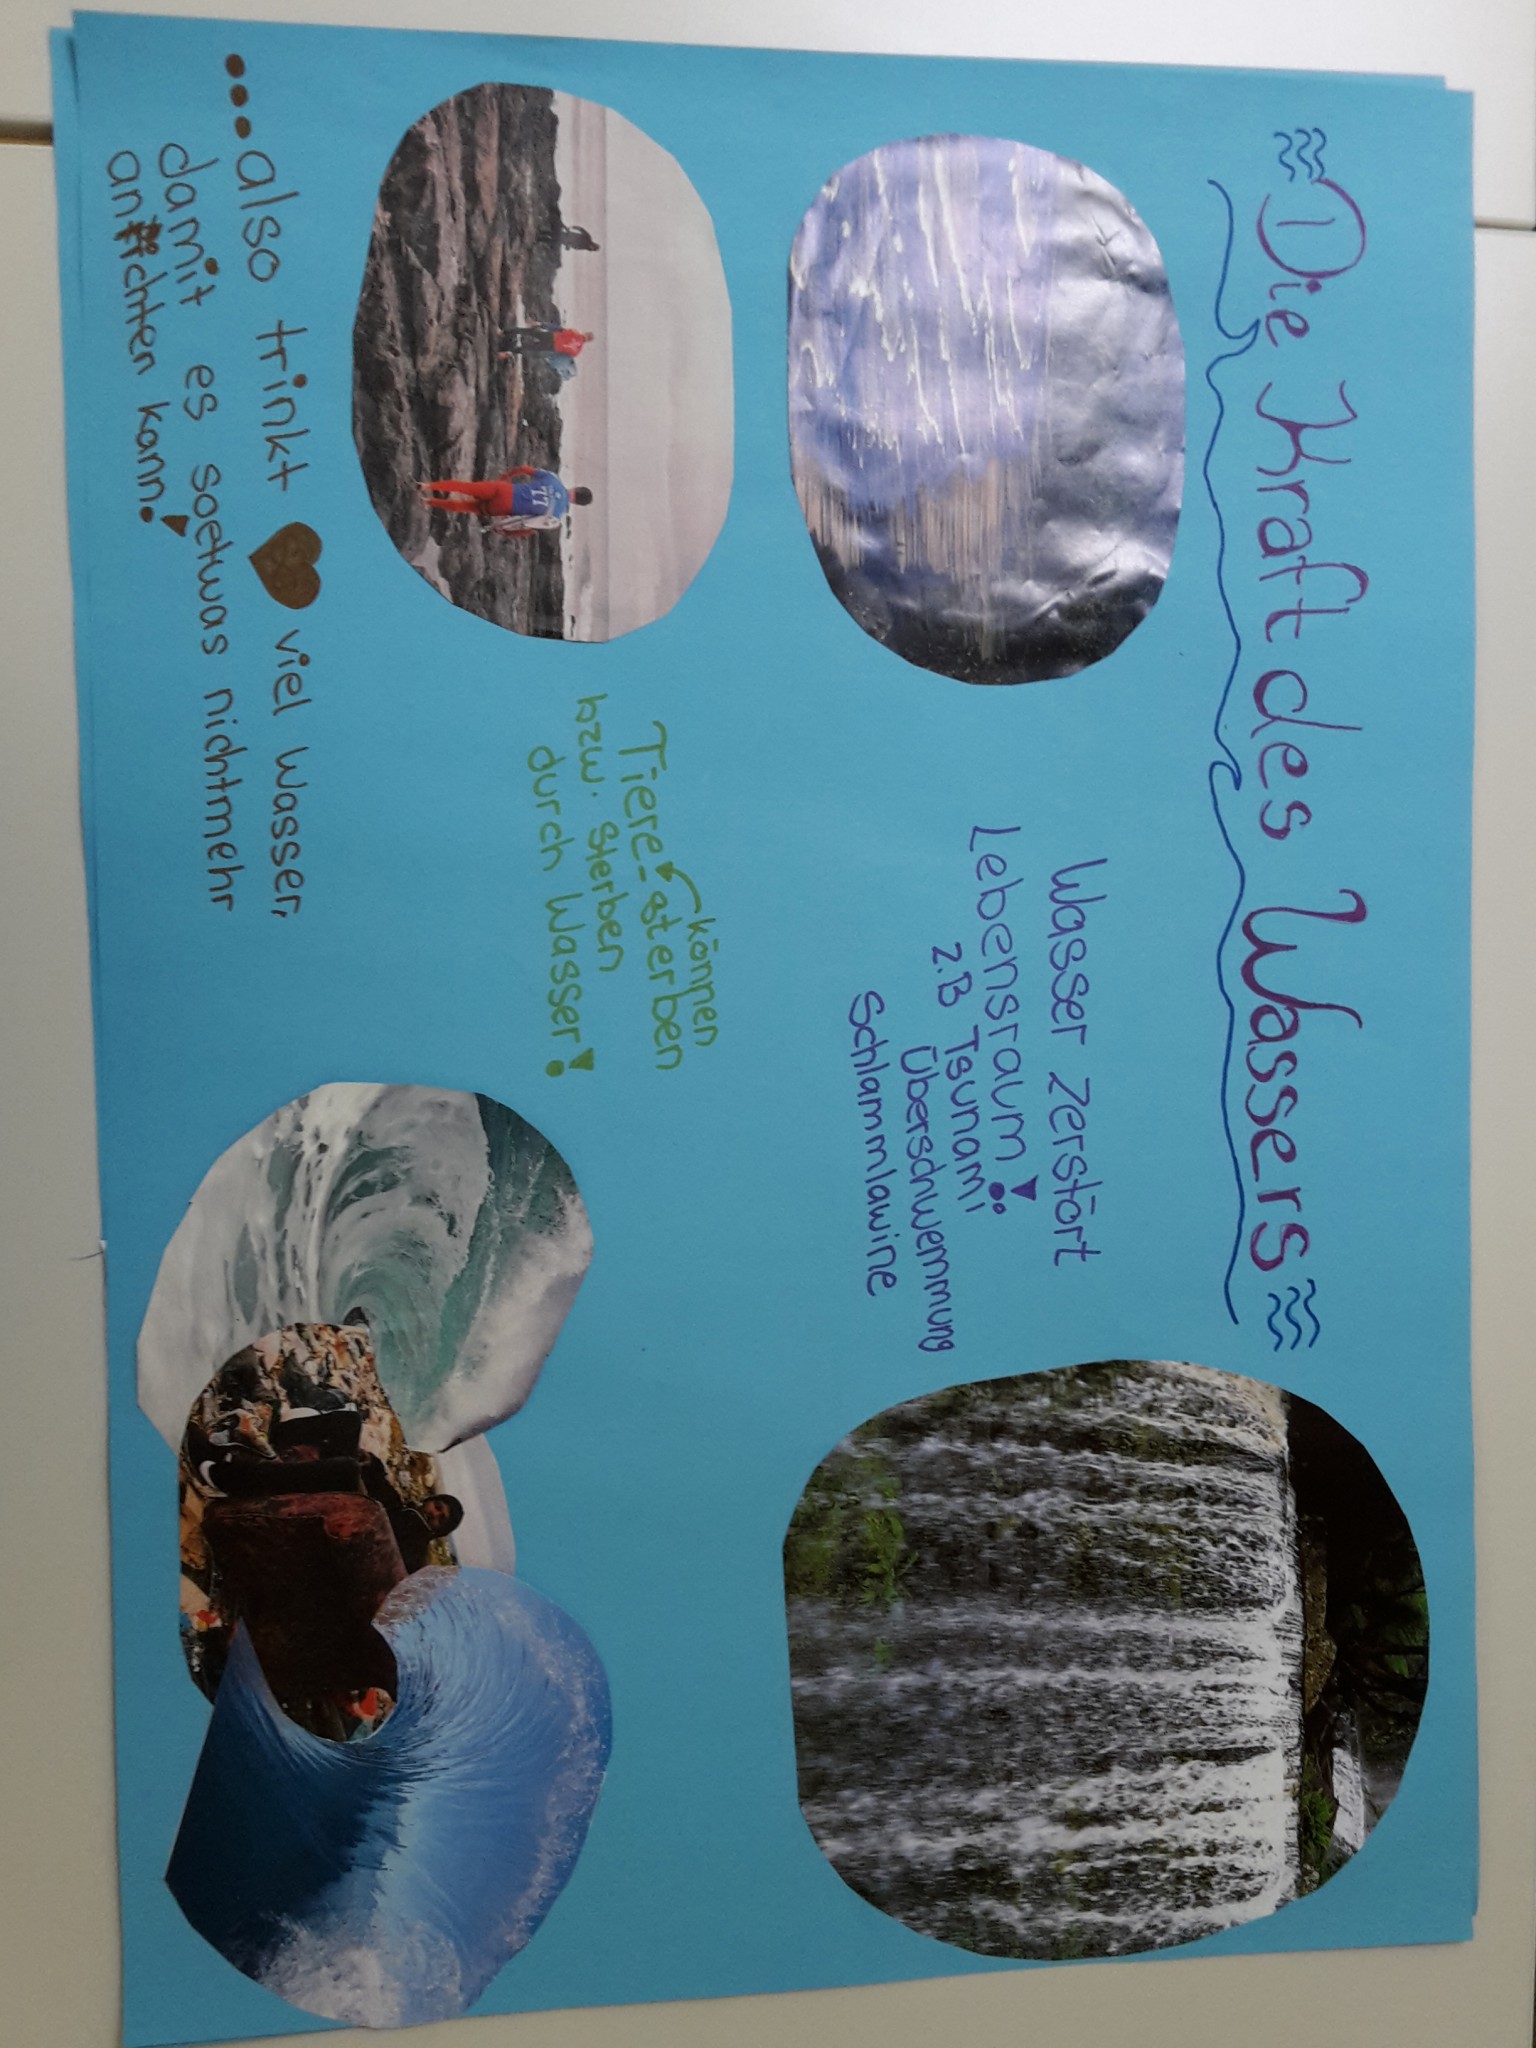 Die Kraft des Wassers
Wasser zerstört
Lebensraum!
z.B Tsunami
Überschwemmung
Schlammlawine
können
Tiere sterben
bzw. sterben
durch Wasser!
...also trinkt ♥ viel Wasser,
damit es soetwas nichtmehr
anrichten kann!